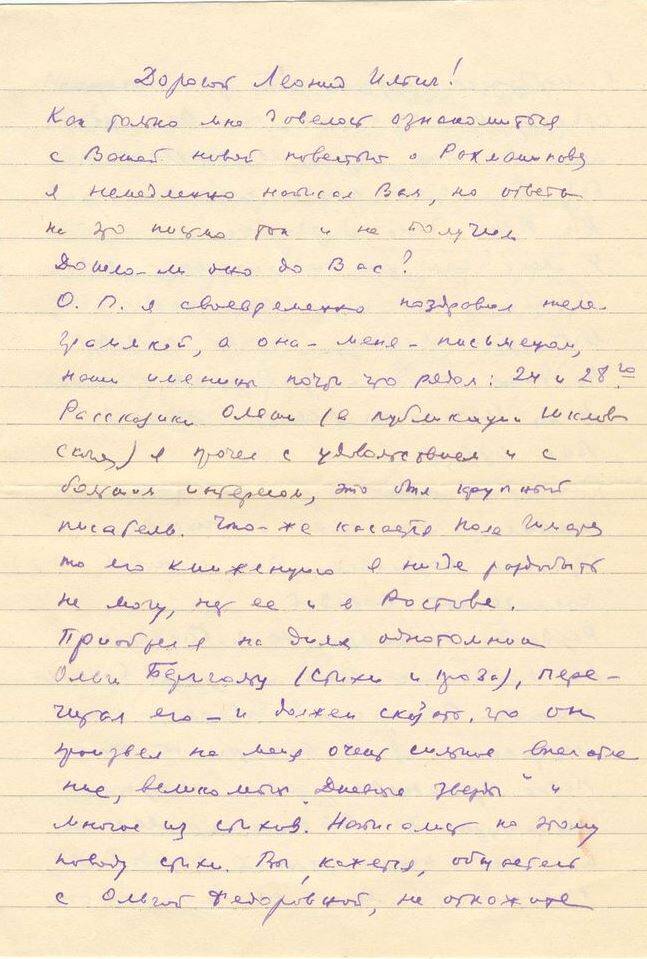 Дорогой Леонид Ильич!
Как только мне довелось ознакомиться
с Вашей новой повестью о Рахманинове
я немедленно написал Вам, но ответа
на это письмо так и не получил
Дошло-ли оно до Вас?
О. П. я своевременно поздравил теле-
граммкой, а она-меня-письмецом,
наши именины почти что рядом: 24 и 28го
Рассказики Олеши (в публикации Шклов
ского) я прочел с удовольствием и с
большим интересом, это был крупный
писатель. Что-же касается Поля
то его книженцию я нигде раздобыть
не могу, нет ее и в Ростове.
Приобрел я на днях однотомник
Ольги Берггольц (стихи и проза), пере-
читал его – и должен сказать, что он
произвел на меня очень сильное впечатле
ние, великолепны „Дневные звезды" и
многое из стихов. Написались по этому
поводу стихи. Вы, кажется, общаетесь
с Ольгой Федоровной, не откажите